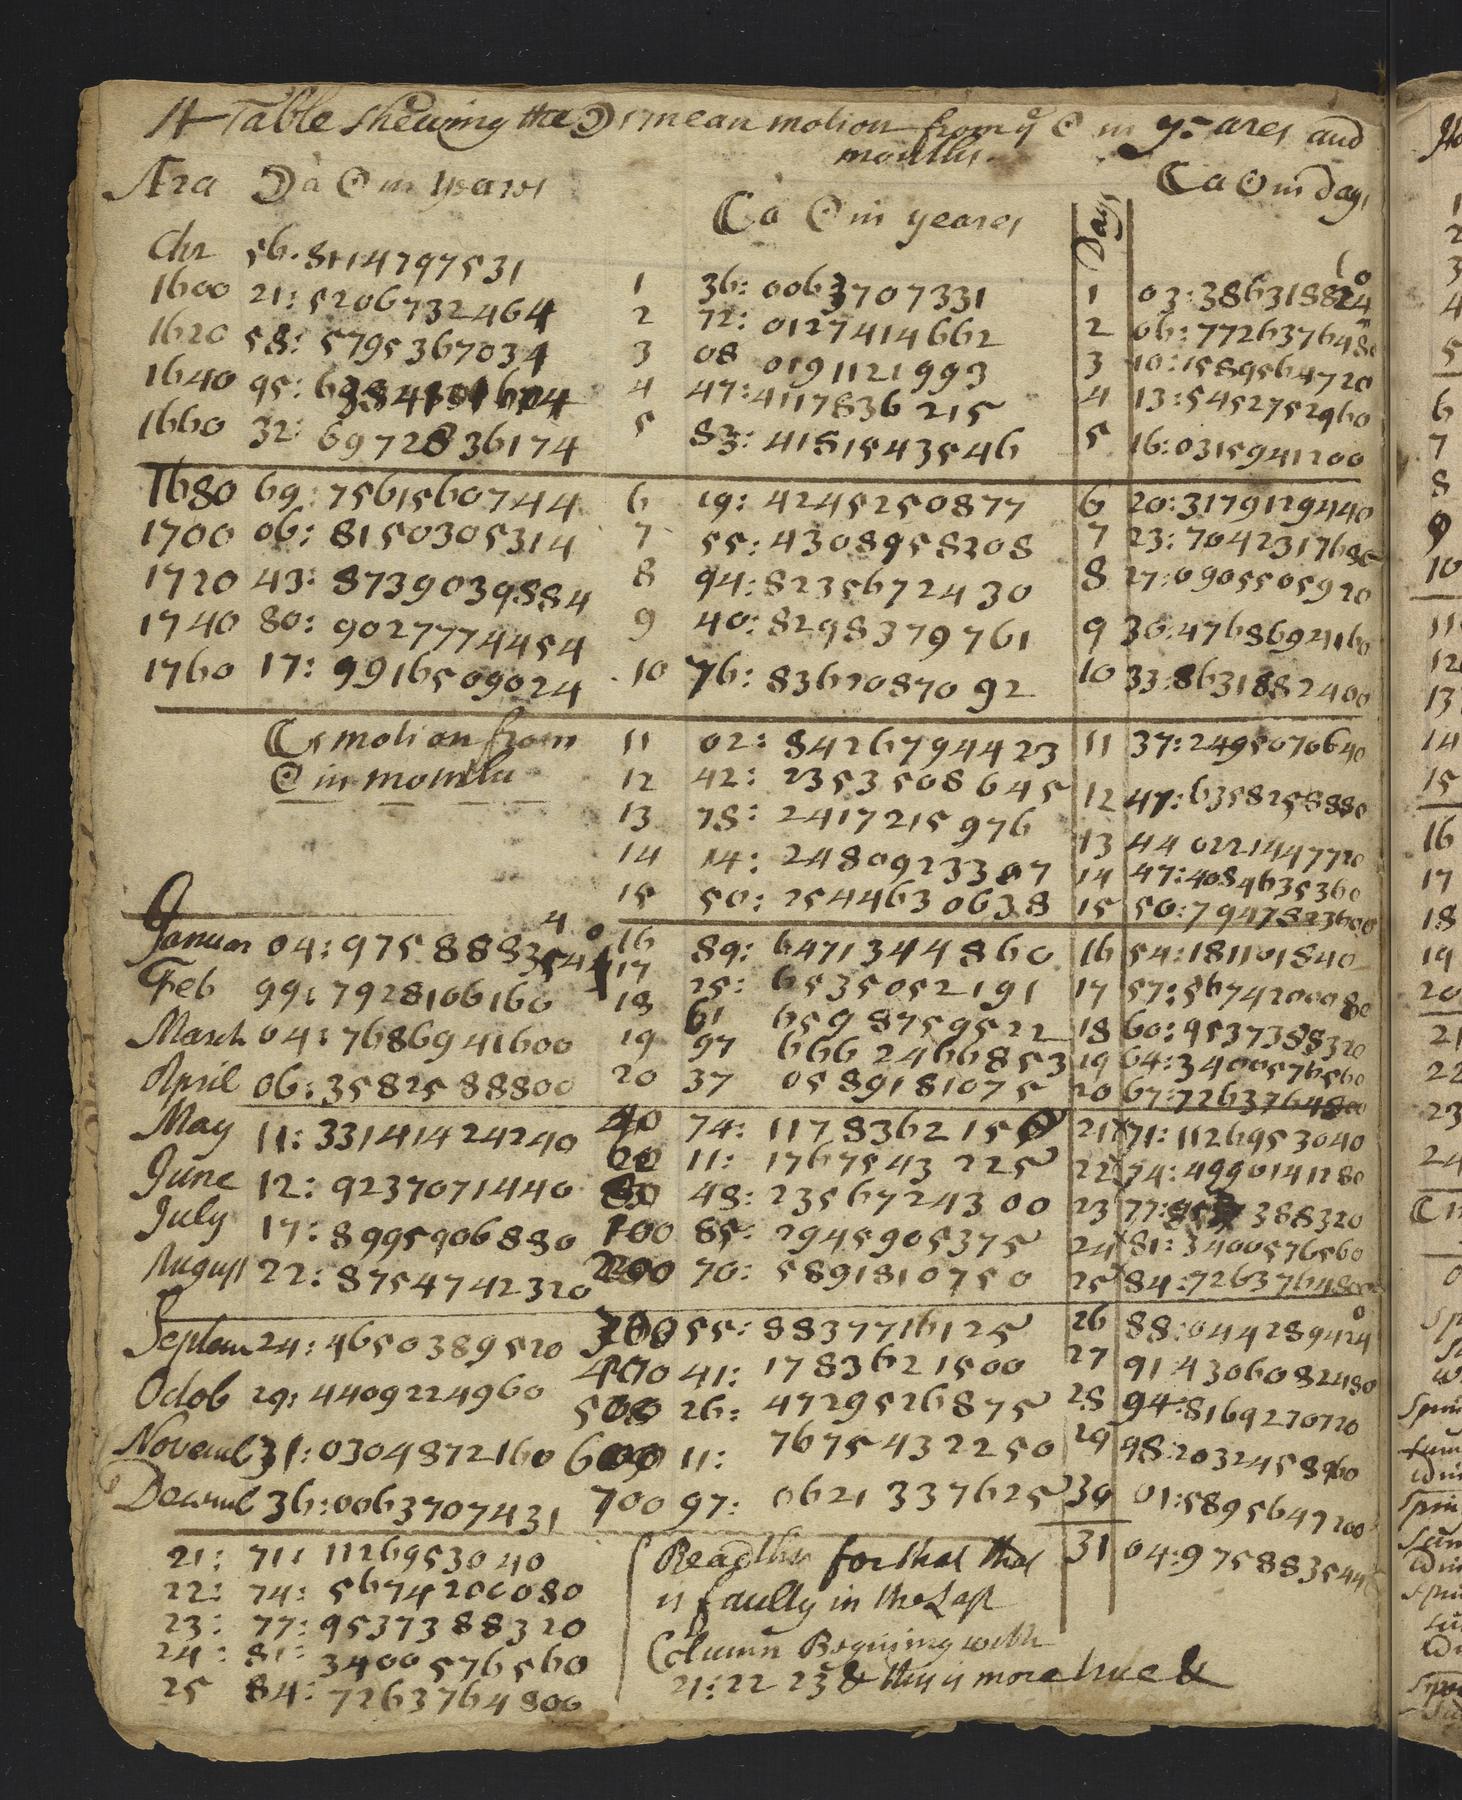 A Table shewing the ☽s mean motion from yᵉ ☉ in yeares and
months.
Æra ☽ a ☉ in years
☾ a ☉ in yeares
Days
☾ a ☉ in days
Chr 56.8114797531
1600 21: 5206732464
1620 58: 5795367034
1640 95:
1660 32: 6972836174
1680 69: 7561560744
1700 06: 8150305314
1720 43: 8739039884
1740 80: 9027774454
1760 17: 9916509024
☾s motion from
☉ in months
Januar 04: 975888
Feb 99: 7928106160
March 04: 7686941600
April 06: 3582588800
May 11: 33141424240
June 12: 9237071440
July 17: 8995906880
August 22: 8754742320
Septem 24: 4650389520
Octob 29: 4409224960
Novemb 31: 0304872160
Decemb 36: 0063707431
21: 71: 1126953040
22: 74: 5674200080
23: 77: 9537388320
24: 81: 3400576560
25 84: 7263764800
1 36: 0063707331
2 72: 0127414662
3 08 0191121993
4 47: 4117836215
5 83: 4181543546
6 19: 4245250877
7 55: 4308958208
8 94: 8235672430
9 40: 8298379761
10 76: 8362087092
11 02: 8426794423
12 42: 2353508645
13 78: 2417215976
14 14: 2480923307
15 50: 2544630638
16 89: 6471344860
17 25: 6535052191
18 61 6598759522
19 97 6662466853
20 37 0589181075
40 74: 1178362150
60 11: 1767543225
80 48: 2356724300
100 85: 2945905375
200 70: 5891810750
300 55: 8837716125
400 41: 1783621500
500 26: 4729526875
600 11: 7675432250
700 97: 0621337625
Read this for that that
is faulty in the Last
Column Begining with
21: 22 23 & this is more true &
1 03: 386318824
2 06: 7726376480
3 10: 1589564720
4 13: 5452752960
5 16: 0315941200
6 20: 3179129440
7 23: 7042317680
8 27: 0905505920
9 30: 4768694160
10 33: 8631882400
11 37: 2495070640
12 47: 6358258880
13 44 0221447720
14 47: 4084635360
15 50: 7947823600
16 54: 181101840
17 57: 5674200080
18 60: 9537388320
19 64: 3400576560
20 67: 7263764800
21 71: 1126953040
22 74: 4990141280
23 77: 388320
24 81: 3400576560
25 84: 7263764800
26 88: 044289424
27 91 4306082480
28 94: 8169270720
29 98: 2032458960
30 01: 5895647200
31 04: 975883544